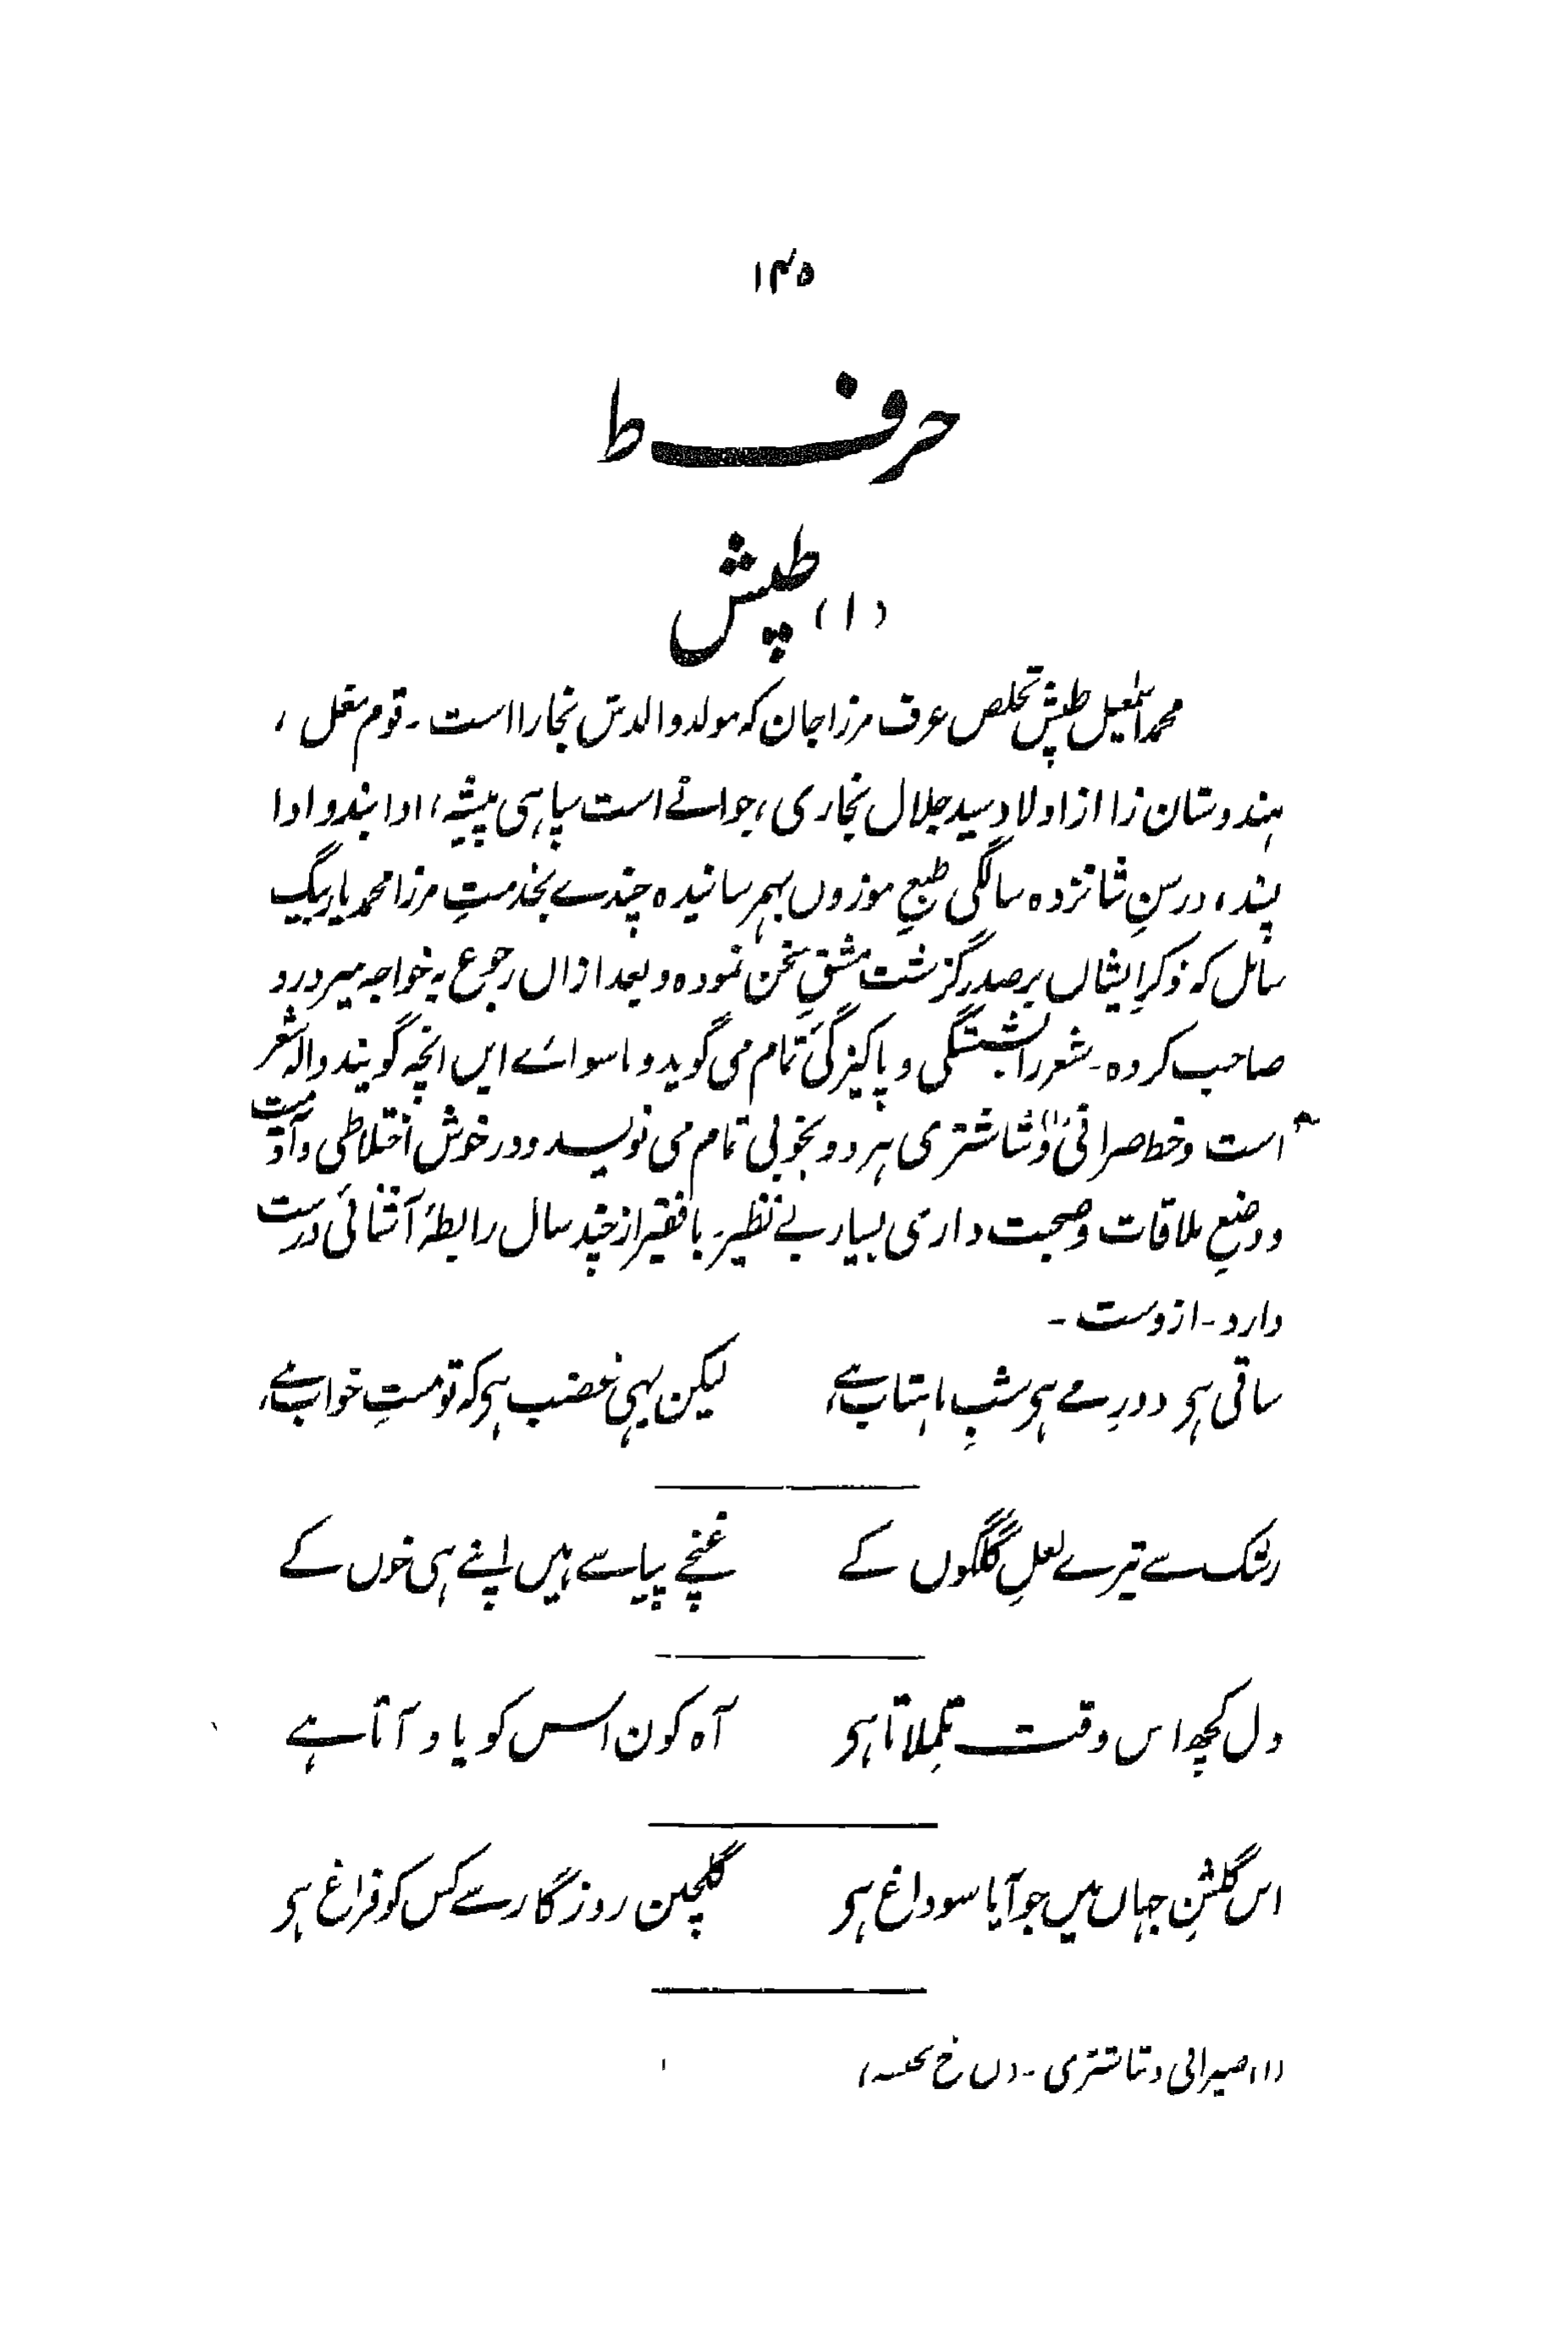 ۱۴۵
حرف ط
(۱) طپش
محمد اسمٰعیل طپش تخلص عرف مرزا جان که مولد والدش بخارا است۔ قوم مغل،
ہندوستان زا از اولادِ سید جلال بخاری، جوانے است سپاہی پیشہ، ادا بند و ادا
پسند، در سنِ شانزده سالگی طبعِ موزوں بہم رسانیده چندے بخدمتِ مرزا محمد یار بیگ
سائل که ذکرِ ایشاں بر صدر گزشت مشقِ سخن نموده و بعد ازاں رجوع به خواجہ میر درد
صاحب کرده۔ شعر را بشستگی و پاکیزگیٔ تمام می گوید و ماسوائے ایں انچہ گویند والۂ شعر
است و خط صرافی و شاشتری(۱) ہر دو بخوبی تمام می نویسد و در خوش اختلاطی و آدمیت
و وضعِ ملاقات و صحبت داری بسیار بے نظیر۔ با فقیر از چند سال رابطۂ آشنائی درست
دارد۔ ازوست۔
ساقی ہی دورِ مے ہی شبِ ماہتاب ہے، لیکن یہی غضب ہی که تو مستِ خواب ہے،
رشک سے تیرے لعلِ گلگوں کے غنچے پیاسے ہیں اپنے ہی خوں کے
دل کچھ اس وقت تِلملاتا ہی آه کون اس کو یاد آتا ہے
اس گلشنِ جہاں میں جو آیا سو داغ ہی گلچین روزگار سے کس کو فراغ ہی
(۱) صیرافی و تاشتری۔ (ن خ)